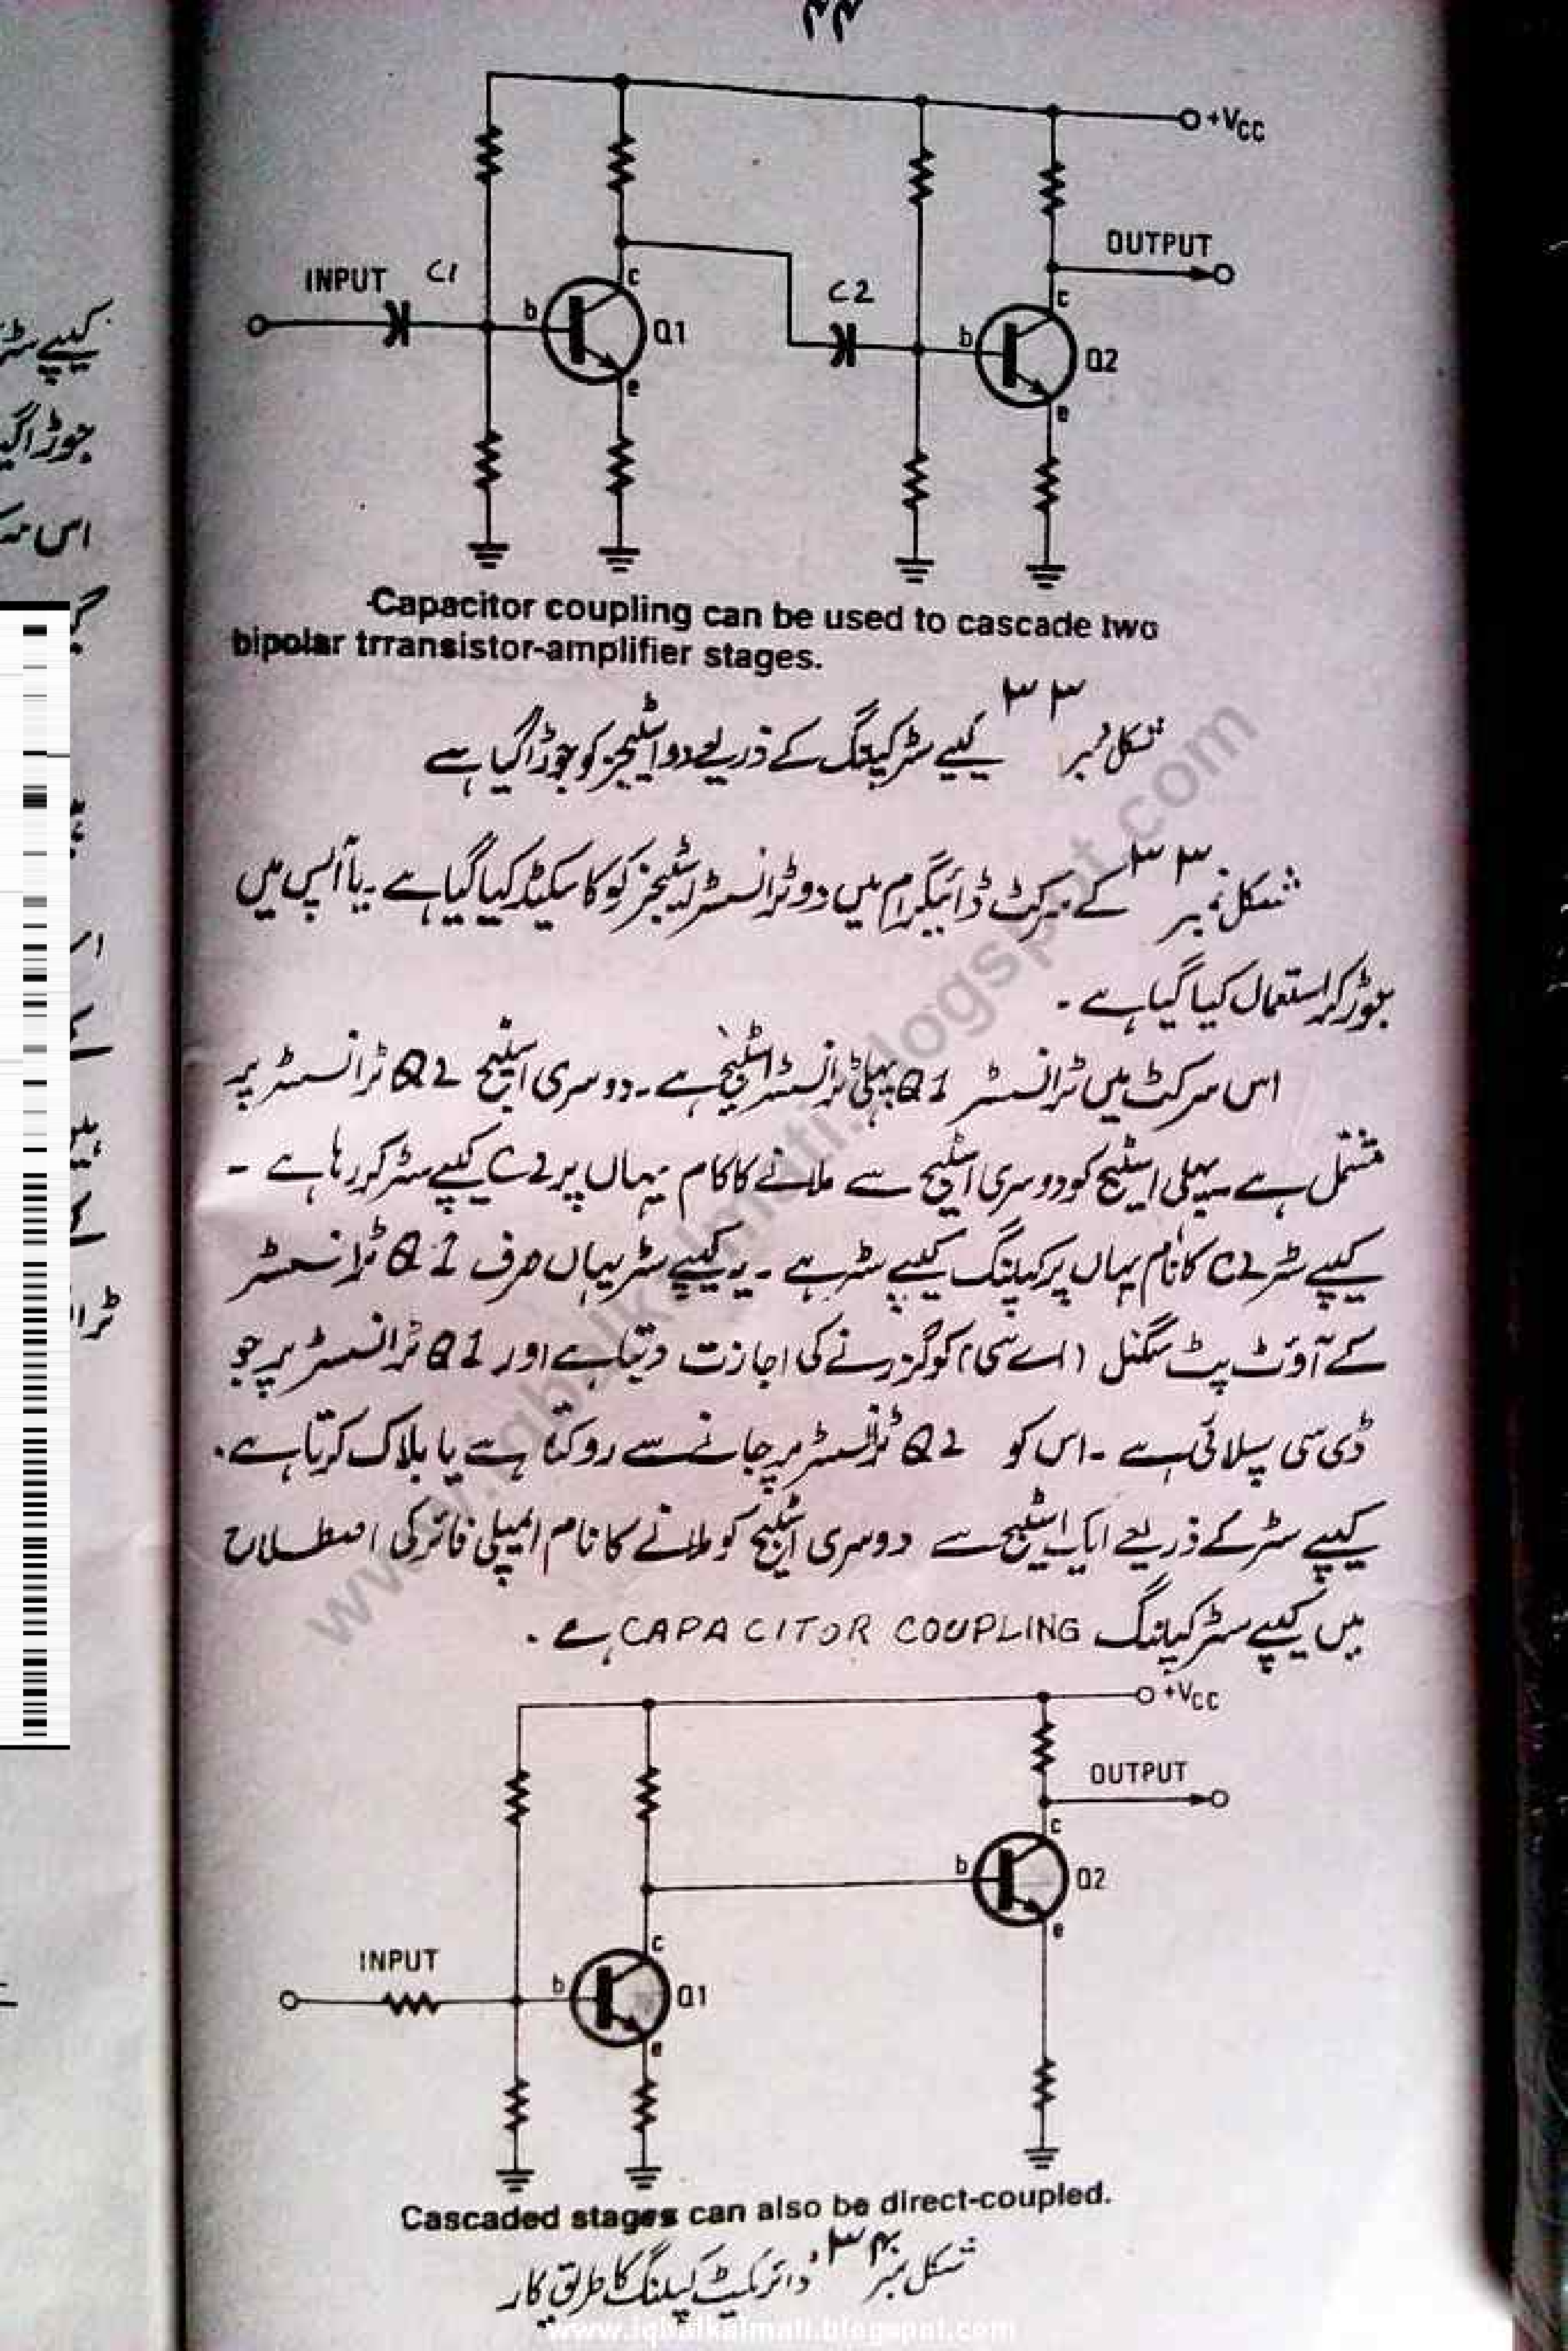 ۴۴
+VCC
OUTPUT
INPUT
C1
C2
b
c
e
Q1
b
c
e
Q2
Capacitor coupling can be used to cascade two
bipolar trransistor-amplifier stages.
شکل نمبر ۳۳ کیپے سٹر کپلنگ کے ذریعے دو اسٹیجز کو جوڑا گیا ہے
شکل نمبر ۳۳ کے سرکٹ ڈائیگرام میں دو ٹرانسسٹر اسٹیجز کو کاسکیڈ کیا گیا ہے ۔ یا آپس میں
جوڑ کر استعمال کیا گیا ہے ۔
اس سرکٹ میں ٹرانسسٹر Q1 پہلی ٹرانسسٹر اسٹیج ہے ۔ دوسری اسٹیج Q2 ٹرانسسٹر پر
مشتمل ہے ۔ پہلی اسٹیج کو دوسری اسٹیج سے ملانے کا کام یہاں پر C2 کیپے سٹر کر رہا ہے ۔
کیپے سٹر C2 کا نام یہاں پر کپلنگ کیپے سٹر ہے ۔ یہ کیپے سٹر یہاں صرف Q1 ٹرانسسٹر
کے آؤٹ پٹ سگنل (اے سی) کو گزرنے کی اجازت دیتا ہے اور Q1 ٹرانسسٹر پر جو
ڈی سی سپلائی ہے ۔ اس کو Q2 ٹرانسسٹر پر جانے سے روکتا ہے یا بلاک کرتا ہے ۔
کیپے سٹر کے ذریعے ایک اسٹیج سے دوسری اسٹیج کو ملانے کا نام ایمپلی فائر کی اصطلاح
میں کیپے سٹر کپلنگ CAPACITOR COUPLING ہے ۔
+VCC
OUTPUT
b
c
e
Q2
INPUT
b
c
e
Q1
Cascaded stages can also be direct-coupled.
شکل نمبر ۳۴ ڈائریکٹ کپلنگ کا طریق کار
www.iqbalkalmati.blogspot.com
www.iqbalkalmati.blogspot.com
کیپے سٹر
جوڑا گیا